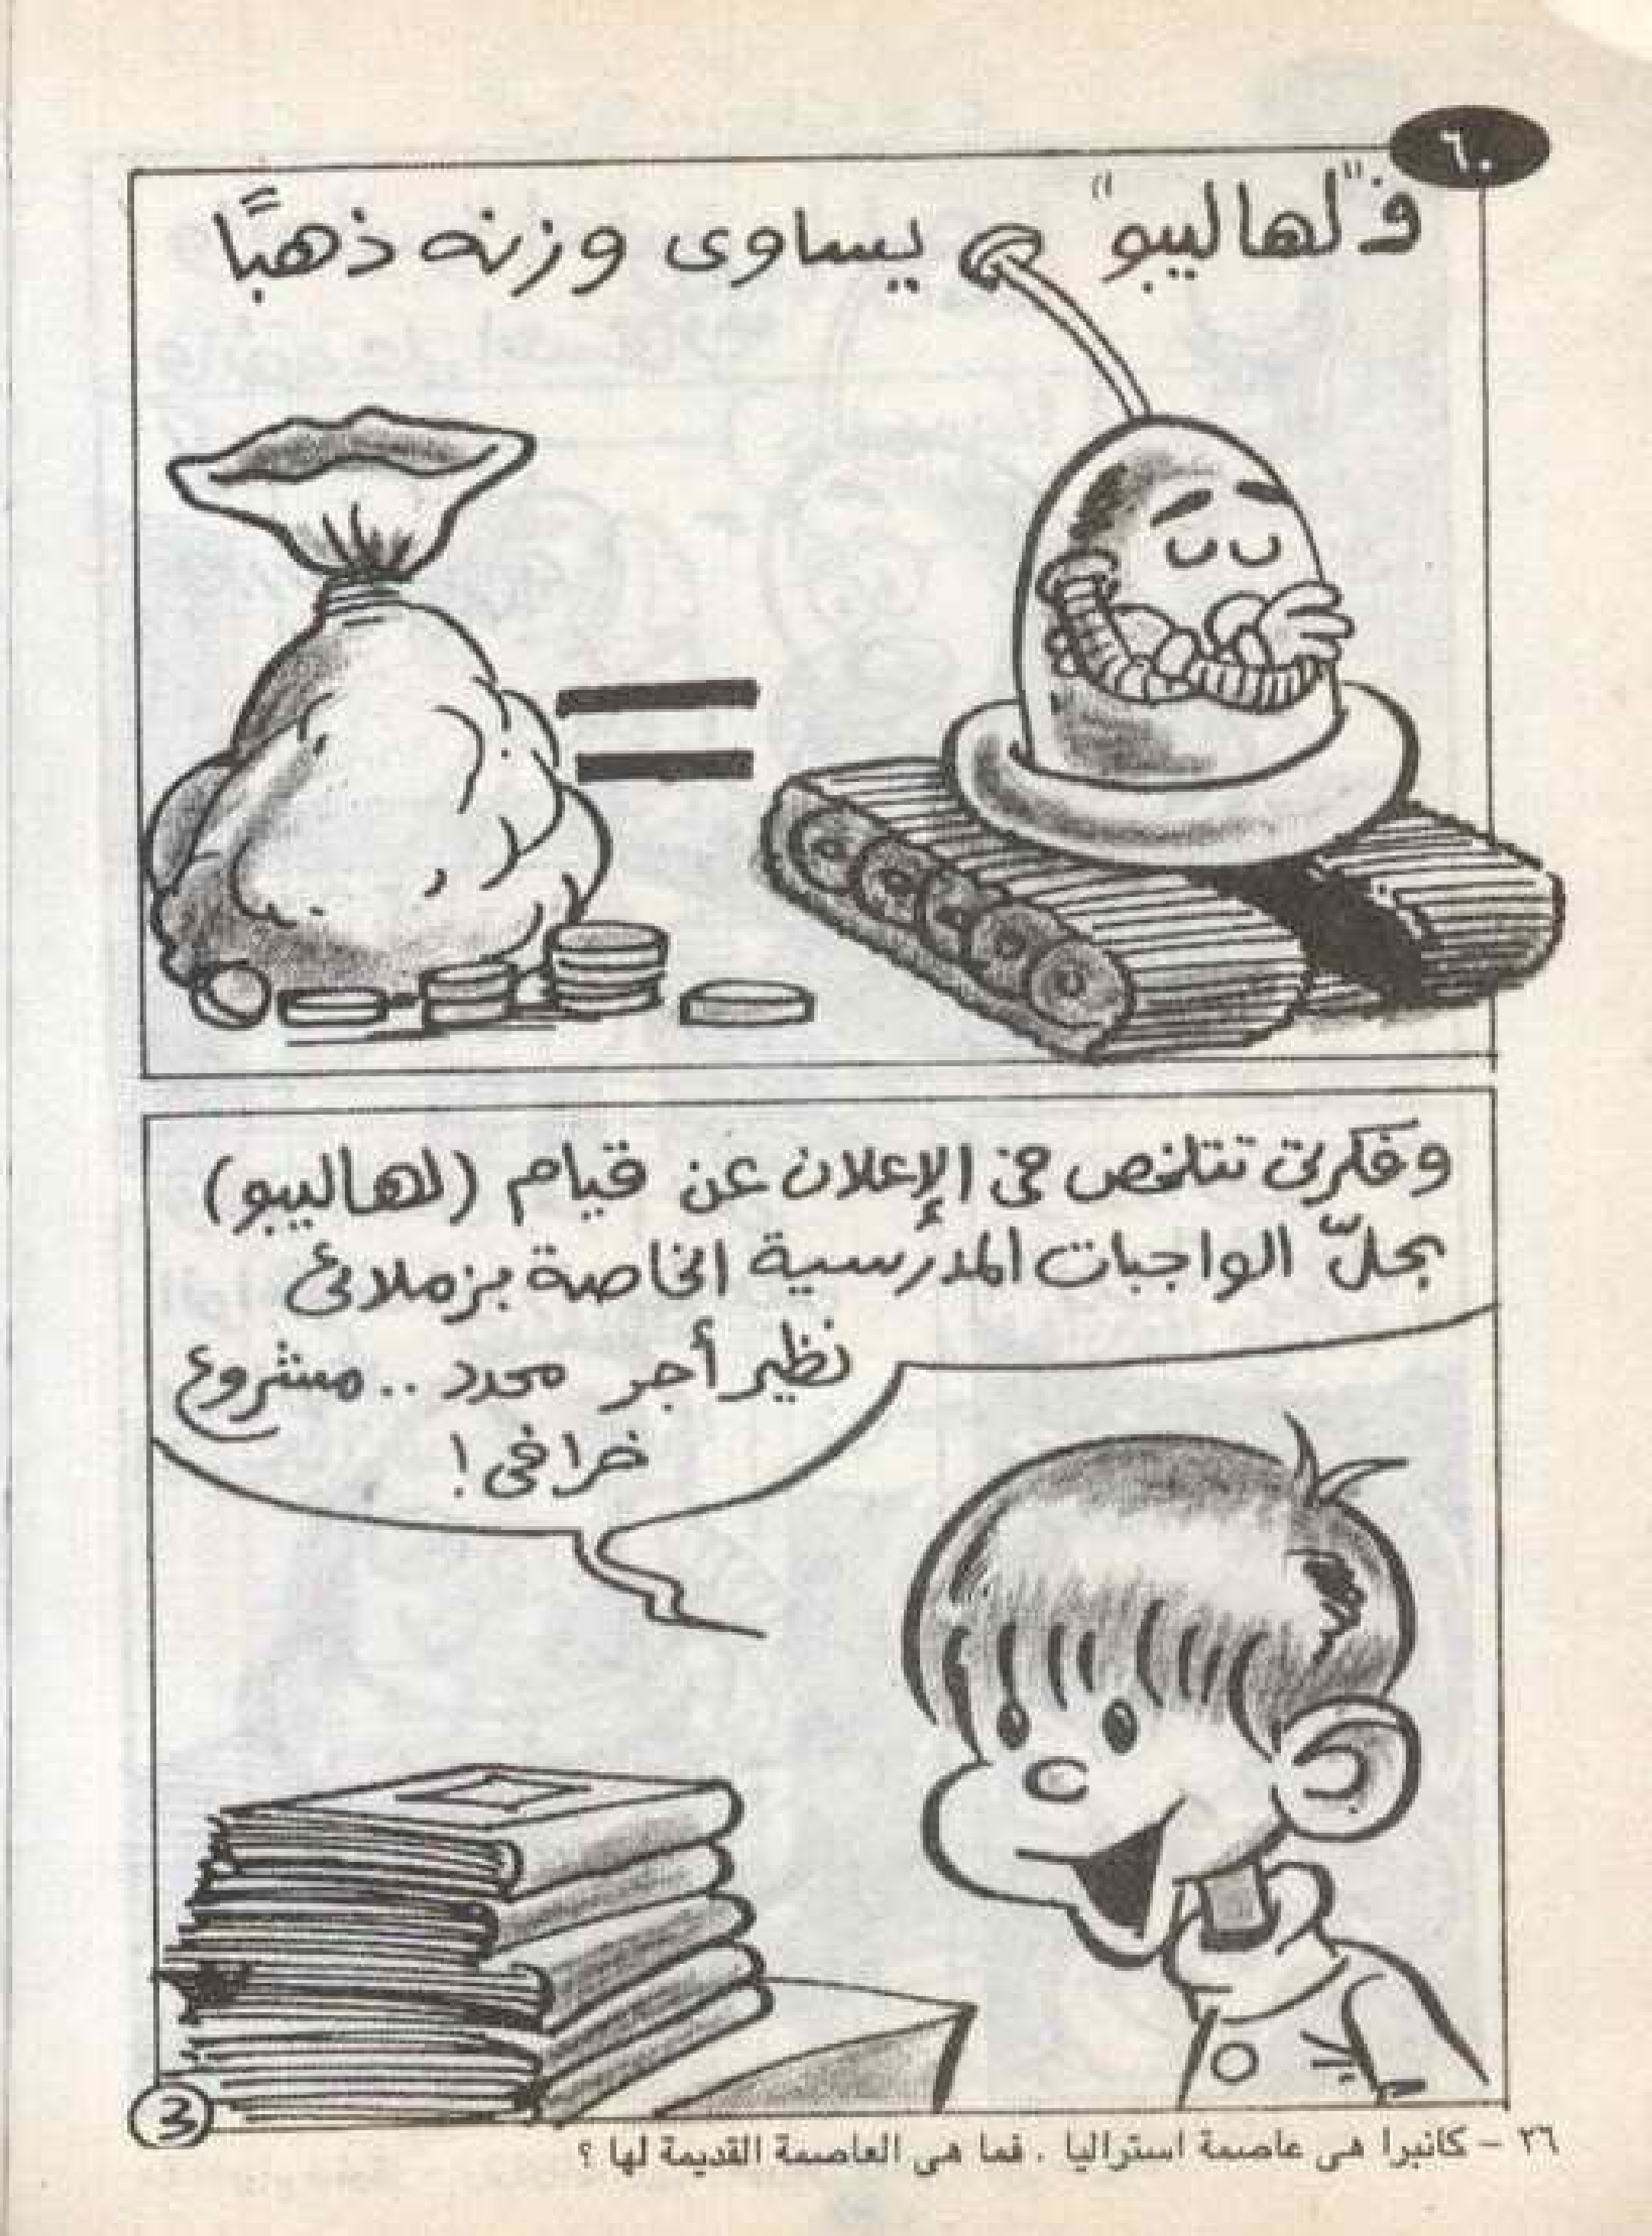 ٦٠
فـ "لهاليبو" يساوى وزنه ذهبًا
وفكرتى تتلخص فى الإعلان عن قيام (لهاليبو)
بحلّ الواجبات المدرسية الخاصة بزملائى
نظير أجر محدد .. مشروع
خرافى !
3
٢٦ – كانبرا هى عاصمة استراليا . فما هى العاصمة القديمة لها ؟